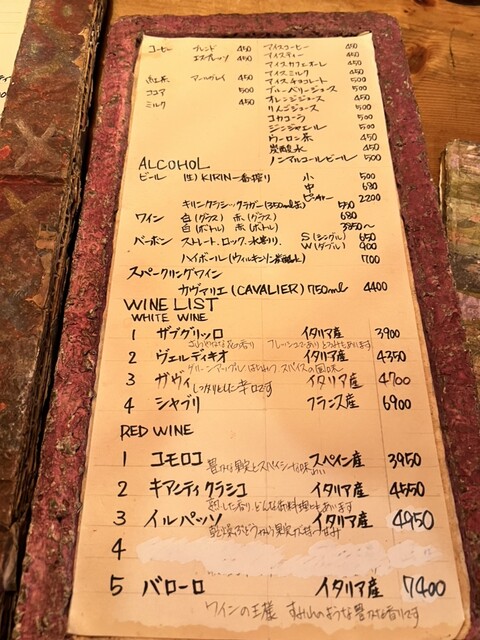 コーヒー ブレンド 450 アイスコーヒー 450
エスプレッソ 450 アイスティー 450
アイスカフェオーレ 450
紅茶 アールグレイ 450 アイスミルク 450
ココア 500 アイスチョコレート 500
ミルク 450 ブルーベリージュース 500
オレンジジュース 450
りんごジュース 500
コカコーラ 500
ジンジャエール 500
ウーロン茶 450
炭酸水 450
ALCOHOL ノンアルコールビール 500
ビール (生) KIRIN一番搾り 小 500
中 680
ピッチャー 2200
キリンクラシックラガー(350ml缶)
ワイン 白(グラス) 赤(グラス) 680
白(ボトル) 赤(ボトル) 3850〜
バーボン ストレート.ロック.水割り. S(シングル) 650
W(ダブル)
ハイボール(ウィルキンソン炭酸水) 700
スパークリングワイン
カヴァリエ(CAVALIER) 750ml 4400
WINE LIST
WHITE WINE
1 ザブグリッロ イタリア産 3900
2 ヴェルディキオ イタリア産 4350
グリーンアップル スパイスの風味
3 ガヴィ イタリア産 4700
しっかりとした辛口です
4 シャブリ フランス産 6900
RED WINE
1 コモロコ スペイン産 3950
豊かな果実とスパイシーな味わい
2 キアンティクラシコ イタリア産 4550
熟した香り どんなお料理にもあいます
3 イルパッソ イタリア産 4950
4
5 バローロ イタリア産 7400
ワインの王様 すみれのような豊かな香りです